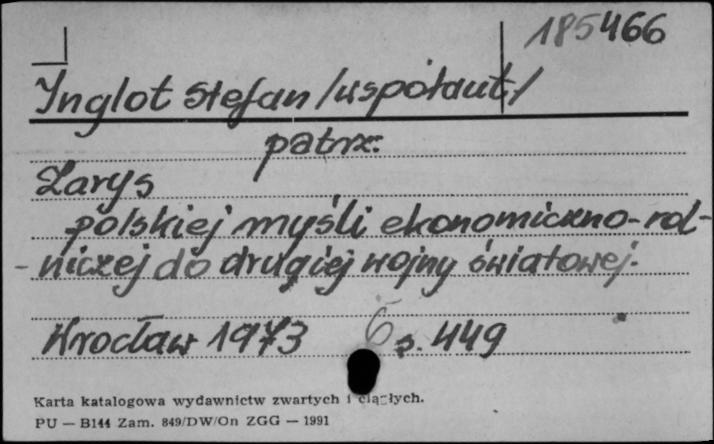 185466
Inglot Stefan /współaut./
patrz:
Zarys
polskiej myśli ekonomiczno-rol-
-niczej do drugiej wojny światowej.
Wrocław 1973 s. 449
Karta katalogowa wydawnictw zwartych i ciągłych.
PU — B144 Zam. 849/DW/On ZGG — 1991